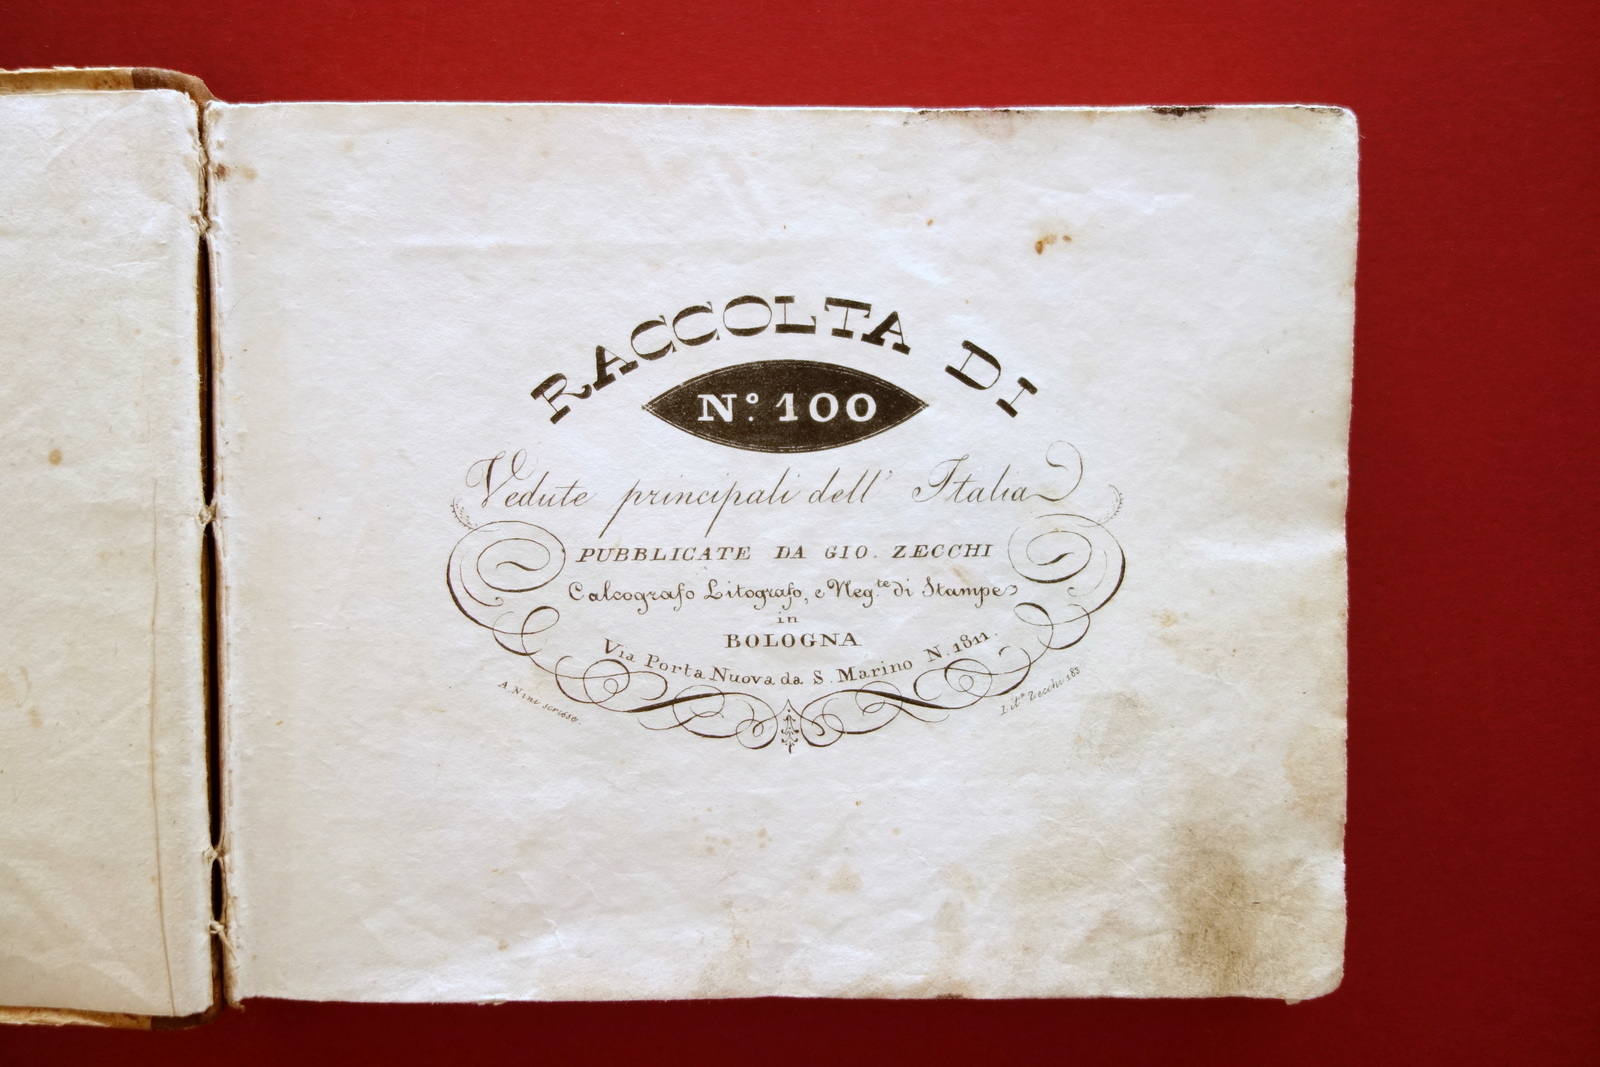 RACCOLTA DI
Nº. 100
Vedute principali dell' Italia
PUBBLICATE DA GIO. ZECCHI
Calcografo Litografo, e Neg.te di Stampe
in
BOLOGNA
Via Porta Nuova da S. Marino N. 1311.
A. Nini scrisse.
Lit.a Zecchi 183